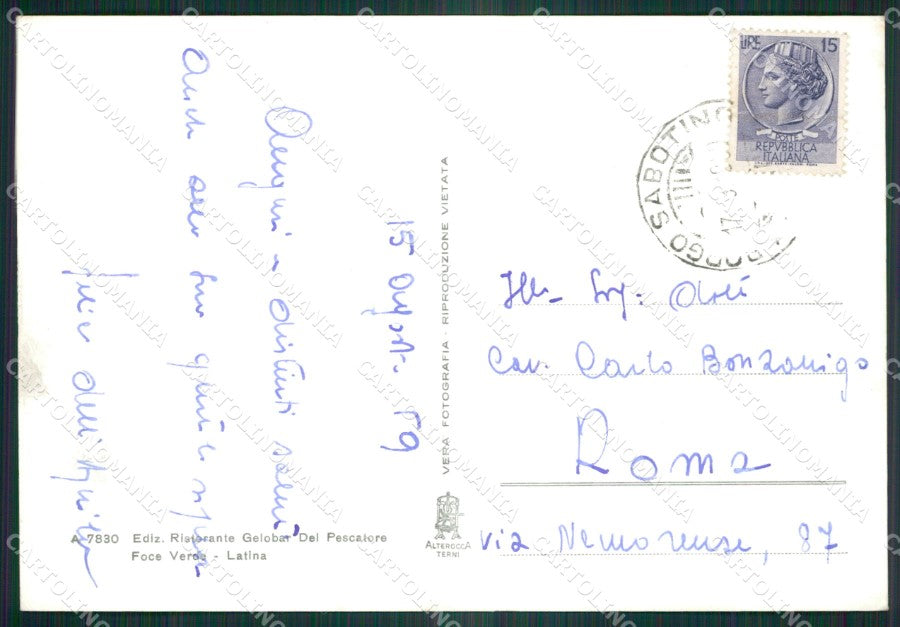 LIRE 15
POSTE
REPVBBLICA
ITALIANA
BORGO SABOTINO
15 Agosto 59
Auguri e distinti saluti
anche
VERA FOTOGRAFIA - RIPRODUZIONE VIETATA
Ill. Sig. Dott.
Cav. Carlo Bonzanigo
Roma
via Nemorense, 87
A 7830 Ediz. Ristorante Gelobar Del Pescatore
Foce Verde - Latina
ALTEROCCA
TERNI
CARTOLINOMANIA